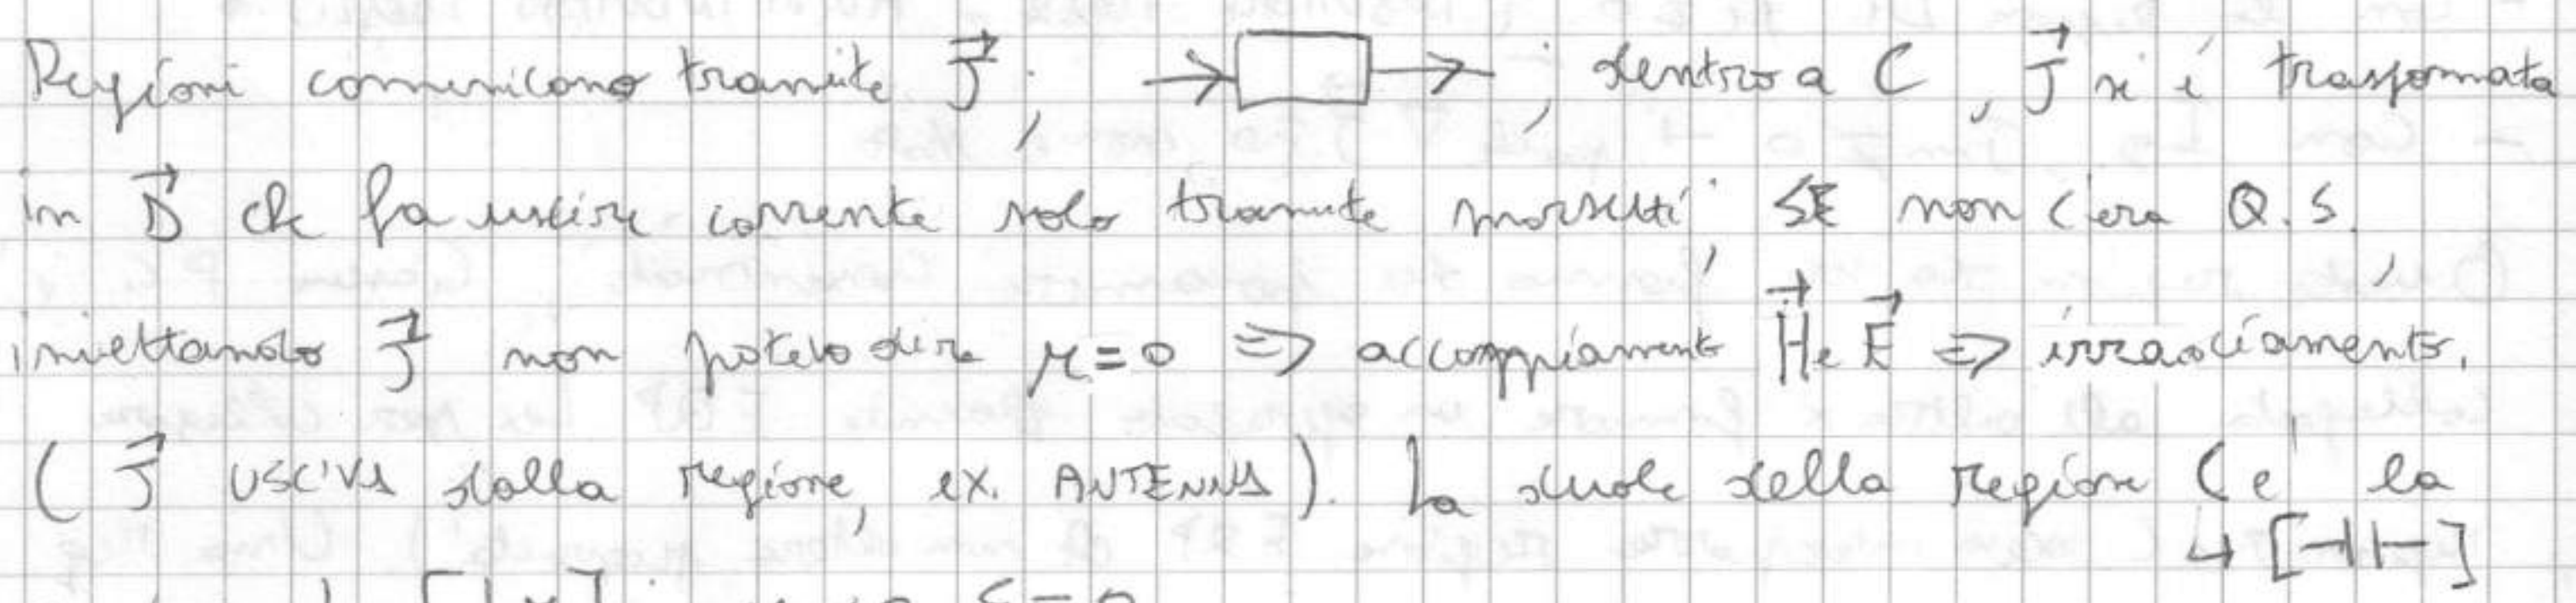 Regioni comunicano tramite J⃗ ; → □ → ; dentro a C , J⃗ si è trasformata
in D⃗ che fa uscire corrente solo tramite morsetti ; SE non c'era Q.S. ,
iniettando J⃗ non potevo dire μ=0 ⇒ accoppiamento H⃗ e E⃗ ⇒ irraggiamento.
( J⃗ USCIVA dalla regione, ex. ANTENNA ). La duale della regione C è la
↳ [⊣⊢]